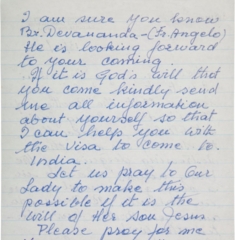 I am sure you know
Br. Devananda-(Fr. Angelo)
He is looking forward
to your coming.
If it is God's will that
you come kindly send
me all information
about yourself so that
I can help you with
the visa to come to
India.
Let us pray to Our
Lady to make this
possible if it is the
will of Her son Jesus.
Please pray for me